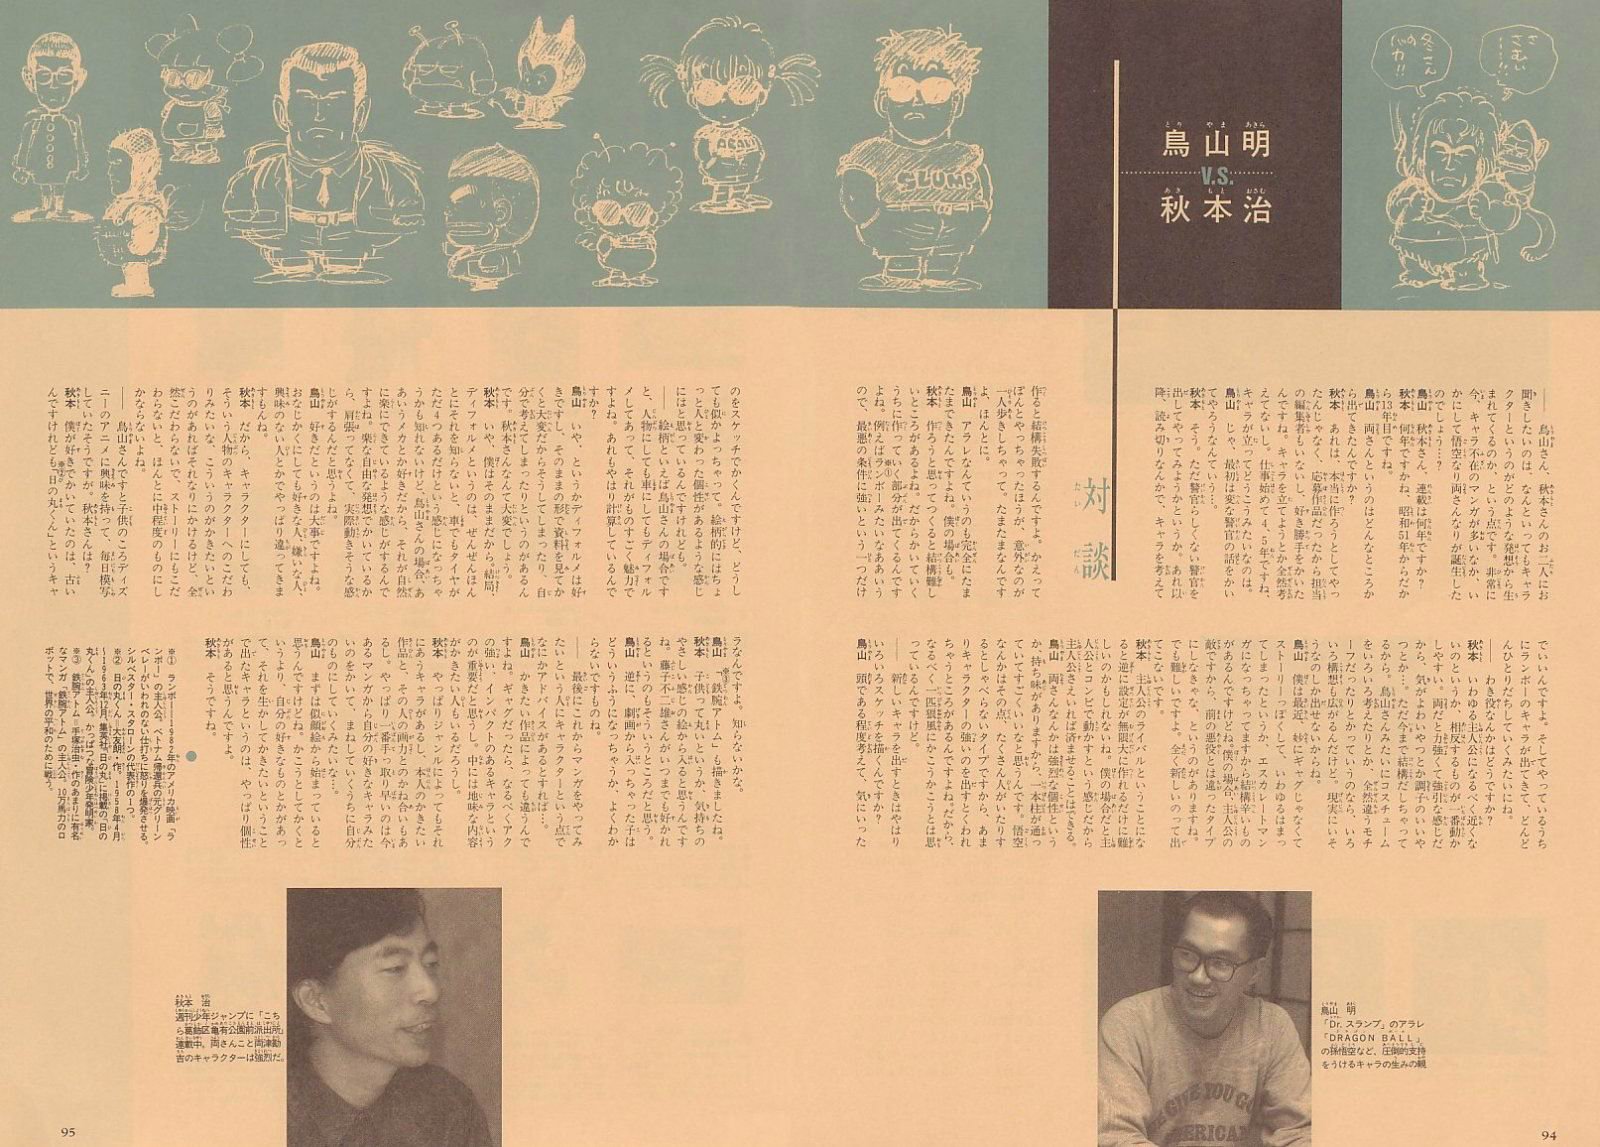 さむい
ー!!
冬さん
バカ!!
鳥山明
V.S.
秋本治
SLUMP
対談
――鳥山さん、秋本さんのお二人にお
聞きしたいのは、なんといってもキャラ
クターというのがどのような発想から生
まれてくるのか、という点です。非常に
今、キャラ不在のマンガが多いなか、い
かにして悟空なり両さんなりが誕生した
のでしょう…?
鳥山 秋本さん、連載は何年ですか?
秋本 何年ですかね、昭和51年からだか
ら13年目ですね。
鳥山 両さんというのはどんなところか
ら出てきたんですか?
秋本 あれは、本当に作ろうとしてやっ
たんじゃなく、応募作品だったから担当
の編集者もいないし、好き勝手をかいた
んですね。キャラを立てようとか全然考
えてないし。仕事始めて4、5年ですね、
キャラが立ってどうこうみたいなのは。
鳥山 じゃ、最初は変な警官の話をかい
てやろうなんていう…。
秋本 そう。ただ警官らしくない警官を
出してやってみようかというか。あれ以
降、読み切りなんかで、キャラを考えて
作ると結構失敗するんですよ。かえって
ぽんとやっちゃったほうが、意外なのが
一人歩きしちゃって。たまたまなんです
よ、ほんとに。
鳥山 アラレなんていうのも完全にたま
たまできたんですよね。僕の場合も。
秋本 作ろうと思ってつくると結構難し
いところがあるよね。だからかいていく
うちに作っていく部分が出てくるんです
よね。例えばランボーみたいなああいう
ので、最悪の条件に強いという一つだけ
でいいんですよ。そしてやっているうち
にランボーのキャラが出てきて、どんど
んひとりだちしていくみたいにね。
――わき役なんかはどうですか?
秋本 いわゆる主人公になるべく近くな
いのというか、相反するものが一番動か
しやすい。両だと力強くて強引な感じだ
から、気がよわいやつとか調子のいいや
つとか…。ただ今まで結構だしちゃって
るから。鳥山さんみたいにコスチューム
をいろいろ考えたりとか、全然違うモチ
ーフだったりとかっていうのなら、いろ
いろ構想も広がるんだけど。現実にいそ
うなのしか出せないからね。
鳥山 僕は最近、妙にギャグじゃなくて
ストーリーっぽくして、いわゆるはまっ
てしまったというか、エスカレートマン
ガになっちゃってますから結構辛いもの
があるんですけどね。僕の場合、主人公の
敵ですから、前の悪役とは違ったタイプ
にしなきゃな、というのがありますね。
でも難しいですよ。全く新しいのって出
てこないです。
秋本 主人公のライバルということにな
ると逆に設定が無限に作れるだけに難
しいのかもしれないね。僕の場合だと主
人公とコンビで動かすという感じだから
主人公さえいれば済ませることはできる。
鳥山 両さんなんかは強烈な個性という
か、持ち味がありますから、一本柱が通っ
ていてすごくいいなと思うんです。悟空
なんかはその点、たくさん人がいたりす
るとしゃべらないタイプですから、あま
りキャラクターの強いのを出すとくわれ
ちゃうところがあるんですよね。だから、
なるべく一匹狼風にかこうかことは思
っているんですけど。
――新しいキャラを出すときはやはり
いろいろスケッチを描くんですか?
鳥山 頭である程度考えて、気にいった
のをスケッチでかくんですけど、どうし
ても似かよっちゃって。絵柄的にはちょ
っと人と変わった個性があるような感じ
にはと思っているんですけれども。
――絵柄といえば鳥山さんの場合です
と、人物にしても車にしてもディフォル
メしてあって、それがものすごく魅力で
すよね。あれもやはり計算しているんで
すか?
鳥山 いや、というかディフォルメは好
きですし、そのままの形で資料を見てか
くと大変だからそうしてしまったり、自
分で考えてしまったりというのがあるん
です。秋本さんなんて大変でしょう。
秋本 いや、僕はそのままだから結局、
ディフォルメというのは、ぜんぜんほん
とにそれを知らないと、車でもタイヤが
ただ4つあるだけという感じになっちゃ
うかも知れないけど、鳥山さんの場合、あ
あいうメカとか好きだから、それが自然
に楽にできているような感じがするんで
すよね。楽な自由な発想でかいているか
ら、肩張ってなくて、実際動きそうな感
じがするんだと思うよね。
鳥山 好きだというのは大事ですよね。
おなじかくにしても好きな人、嫌いな人、
興味のない人とかでやっぱり違ってきま
すもんね。
秋本 だから、キャラクターにしても、
そういう人物のキャラクターへのこだわ
りみたいな、こういうのがかきたいとい
うのがあればそれなりにかけるけど、全
然こだわらないで、ストーリーにもこだ
わらないと、ほんとに中程度のものにし
かならないよね。
――鳥山さんですと子供のころディズ
ニーのアニメに興味を持って、毎日模写
していたそうですが。秋本さんは?
秋本 僕が好きでかいていたのは、古い
んですけれども『日の丸くん』というキャ
ラなんですよ。知らないかな。
鳥山 『鉄腕アトム』も描きましたね。
秋本 子供って丸いというか、気持ちの
やさしい感じの絵から入ると思うんです
ね。藤子不二雄さんがいつまでも好かれ
るというのもそういうところだと思う。
鳥山 逆に、劇画から入っちゃった子は
どういうふうになっちゃうか、よくわか
らないですものね。
――最後にこれからマンガをやってみ
たいという人にキャラクターという点で
なにかアドバイスがあるとすれば…。
鳥山 かきたい作品によっても違うんで
すよね。ギャグだったら、なるべくアク
の強い、インパクトのあるキャラという
のが重要だと思うし。中には地味な内容
がかきたい人もいるだろうし。
秋本 やっぱりジャンルによってもそれ
にあうキャラがあるし、本人のかきたい
作品と、その人の画力とのかね合いもあ
るし。やっぱり一番手っ取り早いのは今
あるマンガから自分の好きなキャラみた
いのをかいて、まねしていくうちに自分
のものにしていくみたいな…。
鳥山 まずは似顔絵から始まっていると
思うんですけどね。かこうとしてかくと
いうより、自分が好きなものとかがあっ
て、それを生かしてかきたいということ
で出たキャラというのは、やっぱり個性
があると思うんですよ。
秋本 そうですね。
※① ランボー=1982年のアメリカ映画「ラ
ンボー」の主人公。ベトナム帰還兵の元グリーン
ベレーがいわれのない仕打ちに怒りを爆発させる。
シルベスター・スタローンの代表作の1つ。
※② 日の丸くん=大友朗・作。1958年4月
〜1963年12月、集英社「日の丸」に掲載の「日の
丸くん」の主人公。かっぱつな冒険少年発明家。
※③ 鉄腕アトム=手塚治虫・作のあまりに有名
なマンガ「鉄腕アトム」の主人公。10万馬力のロ
ボットで、世界の平和のために戦う。
鳥山 明
「Dr.スランプ」のアラレ
「DRAGON BALL」
の孫悟空など、圧倒的支持
をうけるキャラの生みの親
秋本 治
週刊少年ジャンプに「こち
ら葛飾区亀有公園前派出所」
連載中。両さんこと両津勘
吉のキャラクターは強烈だ。
95
94